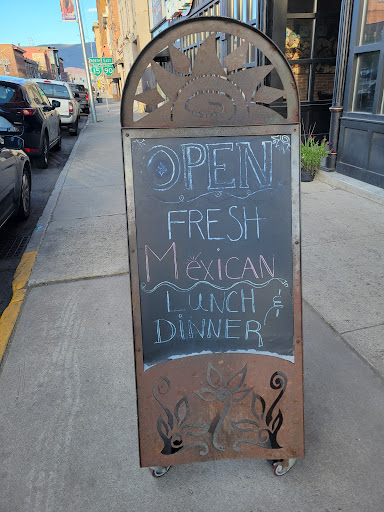 15 90
OPEN
FRESH
Méxican
LUNCH &
DINNER